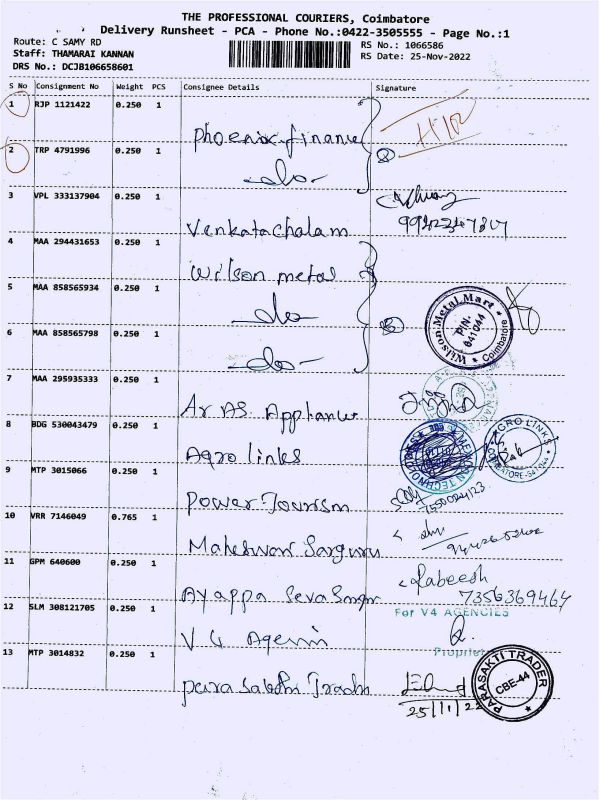 THE PROFESSIONAL COURIERS, Coimbatore
Delivery Runsheet - PCA - Phone No.:0422-3505555 - Page No.:1
Route: C SAMY RD
Staff: THAMARAI KANNAN
DRS No.: DCJB106658601
RS No.: 1066586
RS Date: 25-Nov-2022
S No Consignment No Weight PCS Consignee Details Signature
1 RJP 1121422 0.250 1
Phoenix finance
2 TRP 4791996 0.250 1
-do-
3 VPL 333137904 0.250 1
Venkatachalam
4 MAA 294431653 0.250 1
Wilson metal
5 MAA 858565934 0.250 1
-do-
Wilson Metal Mart
PIN-
641044
Coimbatore
6 MAA 858565798 0.250 1
-do-
7 MAA 295935333 0.250 1
Ar AS. Appliance
8 BDG 530043479 0.250 1
Agro links
AGRO LINKS
9 MTP 3015066 0.250 1
Power Tourism
10 VRR 7146049 0.765 1
Maheswari
11 GPM 640600 0.250 1
Ayappa
Rabeesh
7356369464
12 SLM 308121705 0.250 1
V4
For V4 AGENCIES
Proprietor
13 MTP 3014832 0.250 1
parasakthi
25/11/22
PARASAKTI TRADER
CBE-44